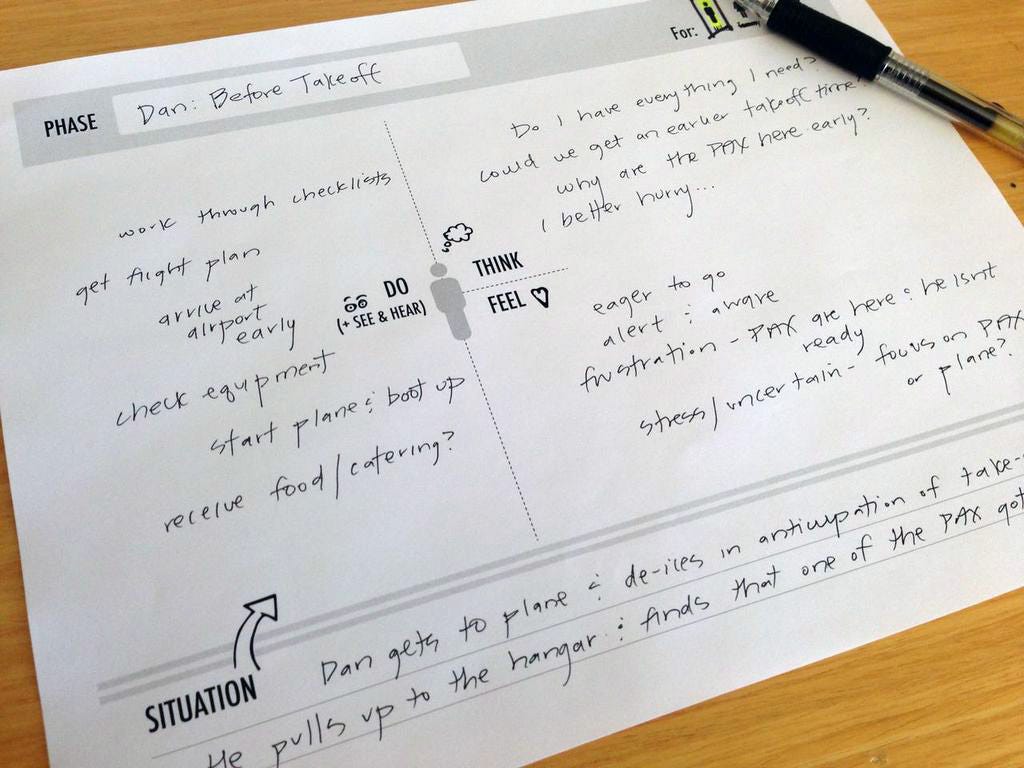 For:
PHASE
Dan: Before Takeoff
work through checklists
get flight plan
arrive at
airport
early
check equipment
start plane & boot up
receive food/catering?
DO
(+ SEE & HEAR)
Do I have everything I need?
could we get an earlier takeoff time?
why are the PAX here early?
I better hurry...
THINK
FEEL
eager to go
alert & aware
frustration - PAX are here & he isnt
ready
stress/uncertain - focus on PAX
or plane?
SITUATION
Dan gets to plane & de-ices in anticipation of take-
He pulls up to the hangar & finds that one of the PAX got